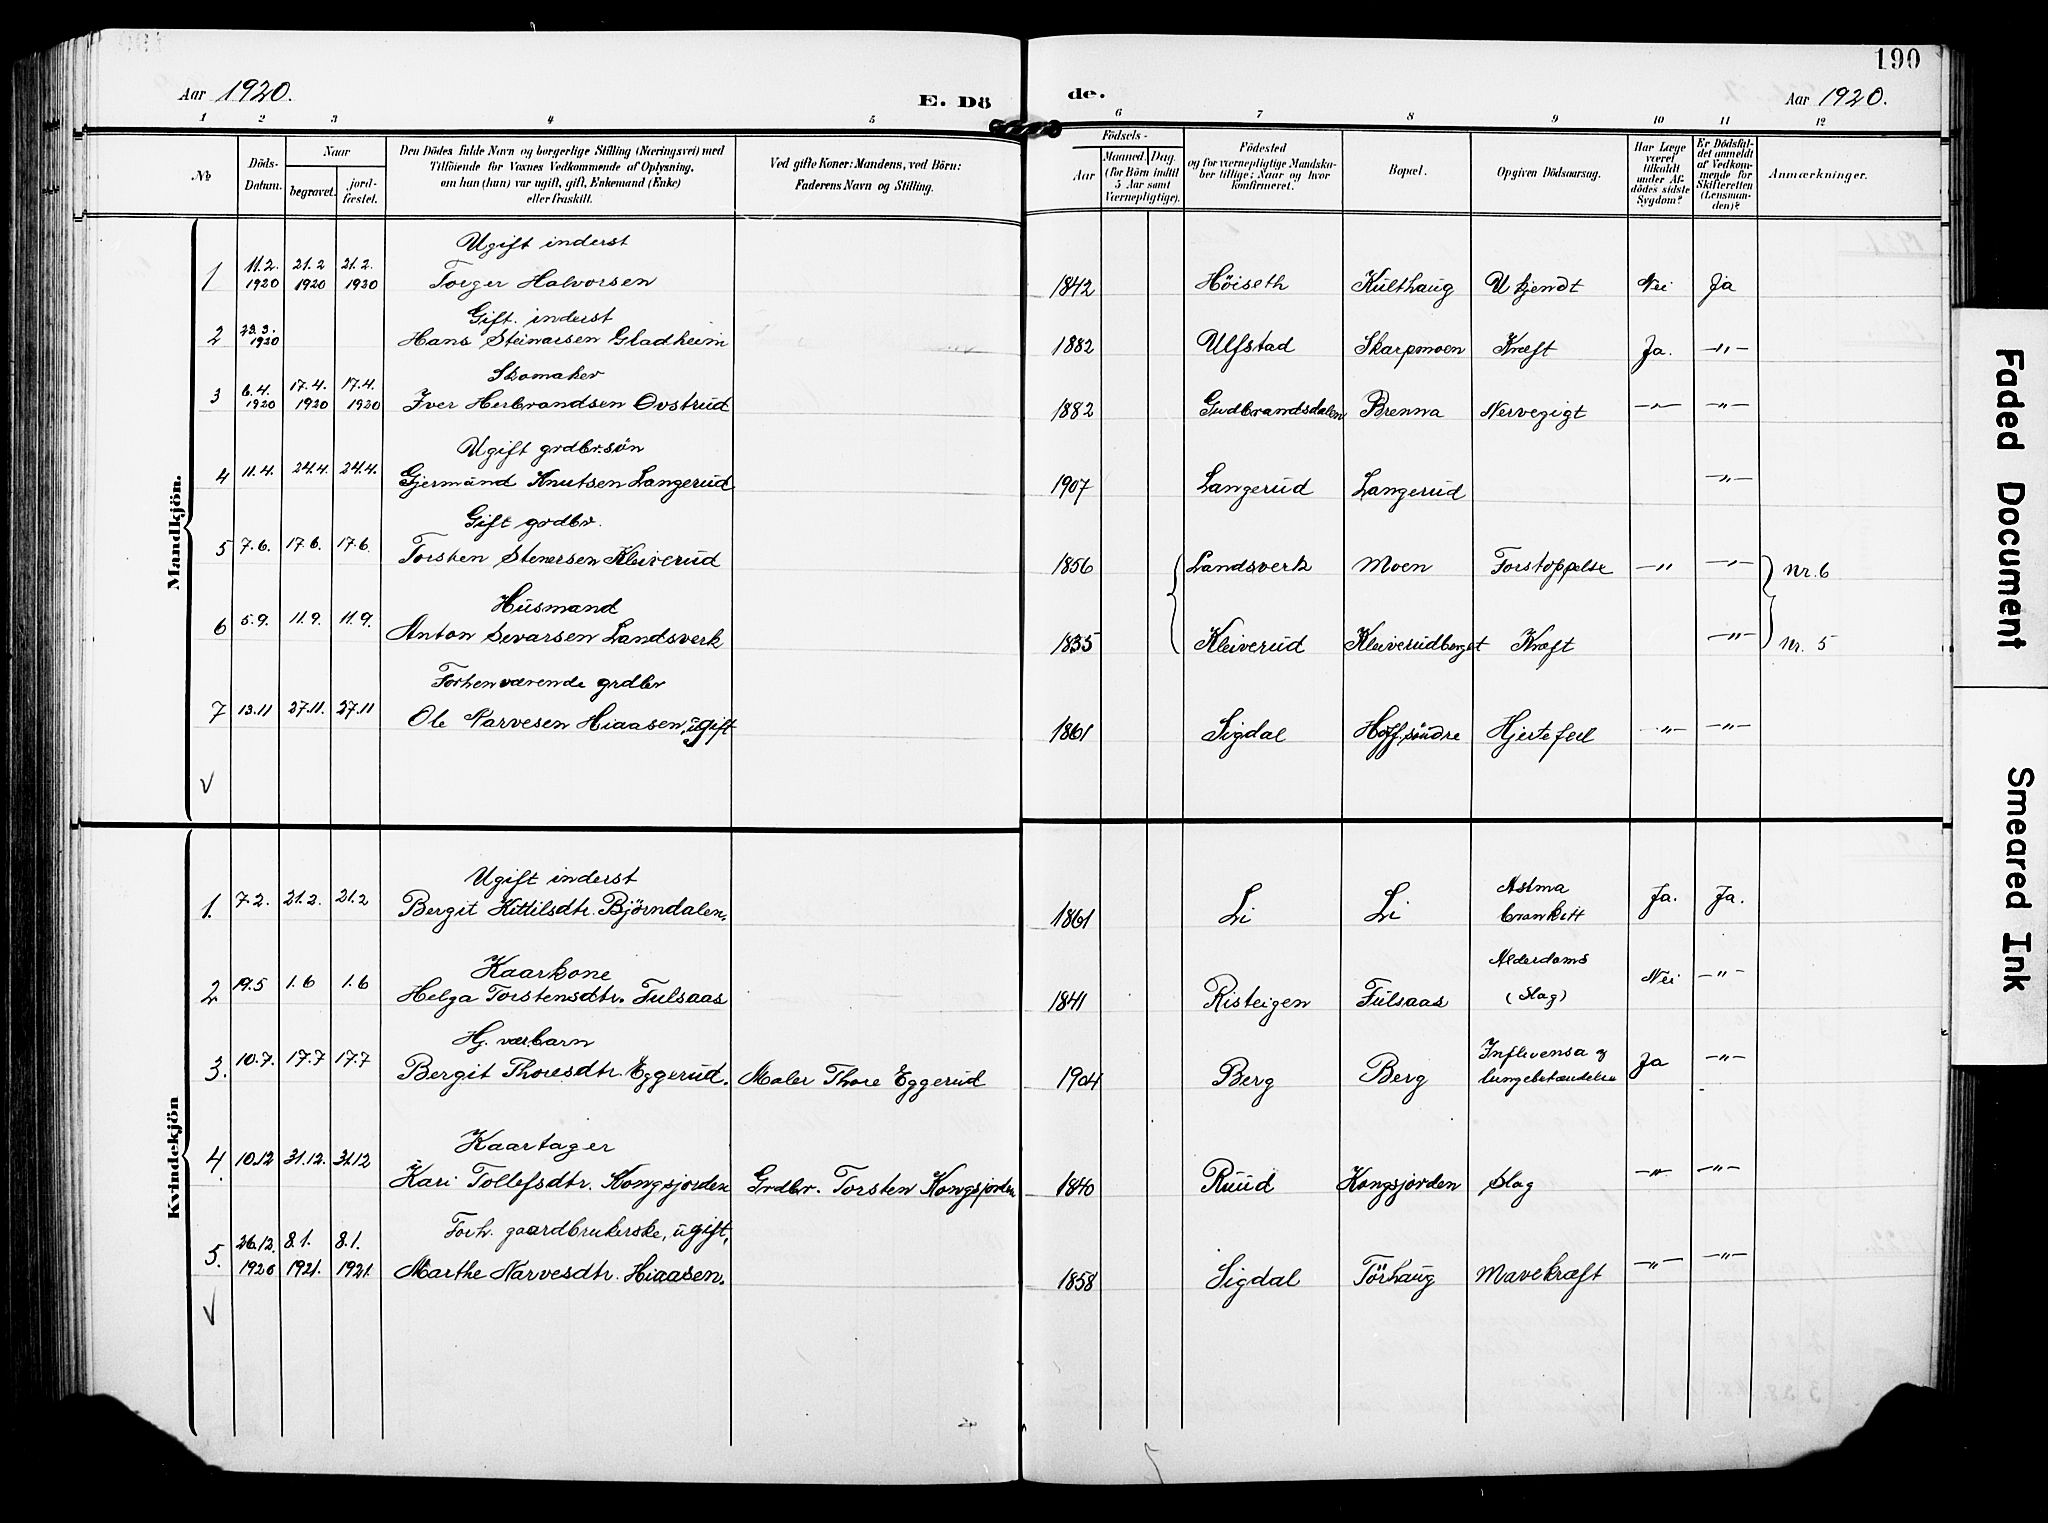 190
Aar 1920.
E. Dö
de.
Aar 1920.
1 2 3 4 5 6 7 8 9 10 11 12
No
Döds-
Datum.
Naar
begravet.
jord-
fæstet.
Den Dödes fulde Navn og borgerlige Stilling (Næringsvei) med
Tilföiende for Voxnes Vedkommende af Oplysning,
om han (hun) var ugift, gift, Enkemand (Enke)
eller fraskilt.
Ved gifte Koner: Mandens, ved Börn:
Faderens Navn og Stilling.
Födsels-
Aar
Maaned.
Dag.
(for Börn indtil
5 Aar samt
Værnepligtige).
Födested
og for værnepligtige Mandska-
ber tillige: Naar og hvor
konfirmeret.
Bopæl.
Opgiven Dödsaarsag.
Har Læge
været
tilkaldt
under Af-
dödes sidste
Sygdom?
Er Dödsfal-
det anmeldt
af Vedkom-
mende for
Skifteretten
(Lensman-
den)?
Anmærkninger.
Mandkjön.
Ugift inderst
1 11.2. 1920 21.2 1920 21.2. 1920 Torger Halvorsen 1842 Höiseth Kulthaug Ukjendt Nei Ja
Gift. inderst
2 23.3. 1920 Hans Steinarsen Gladheim 1882 Ulfstad Skarpmoen Kræft Ja. -"-
Skomaker
3 6.4. 1920 17.4. 1920 17.4. 1920 Iver Herbrandsen Ovstrud 1882 Gudbrandsdalen Brenna Nervegigt -"- -"-
Ugift grdbr.sön
4 11.4. 24.4. 24.4. Gjermund Knutsen Langerud 1907 Langerud Langerud -"-
Gift grdbr.
5 7.6. 17.6. 17.6. Torsten Stenersen Kleiverud 1856 Landsverk Moen Forstoppelse -"- -"- Nr. 6
Husmand
6 5.9. 11.9. 11.9. Anton Sevarsen Landsverk 1835 Kleiverud Kleiverudberget Kræft -"- Nr. 5
Forhenværende grdbr
7 13.11 27.11. 27.11 Ole Narvesen Hiaasen, ugift 1861 Sigdal Hoff söndre Hjertefeil -"- -"-
Kvindekjön
Ugift inderst
1. 7.2. 21.2. 21.2 Bergit Kittilsdtr. Björndalen. 1861 Li Li Astma Ja. Ja.
Kaarkone
2 19.5 1.6 1.6 Helga Torstensdtr. Fulsaas 1841 Risteigen Fulsaas Alderdoms (Slag) Nei -"-
Hj. vær. barn
3. 10.7. 17.7 17.7 Bergit Thoresdtr. Eggerud. Maler Thore Eggerud 1904 Berg Berg Influensa og lungebetændelse Ja -"-
Kaartager
4. 10.12 31.12. 31.12 Kari Tollefsdtr. Kongsjorden Grdbr. Torsten Kongsjorden 1840 Ruud Kongsjorden Slag -"- -"-
Forh. gaardbrukerske, ugift,
5. 26.12. 1920 8.1. 1921. 8.1. 1921. Marthe Narvesdtr. Hiaasen. 1858 Sigdal Törhaug Mavekræft -"- -"-
Faded Document
Smeared Ink